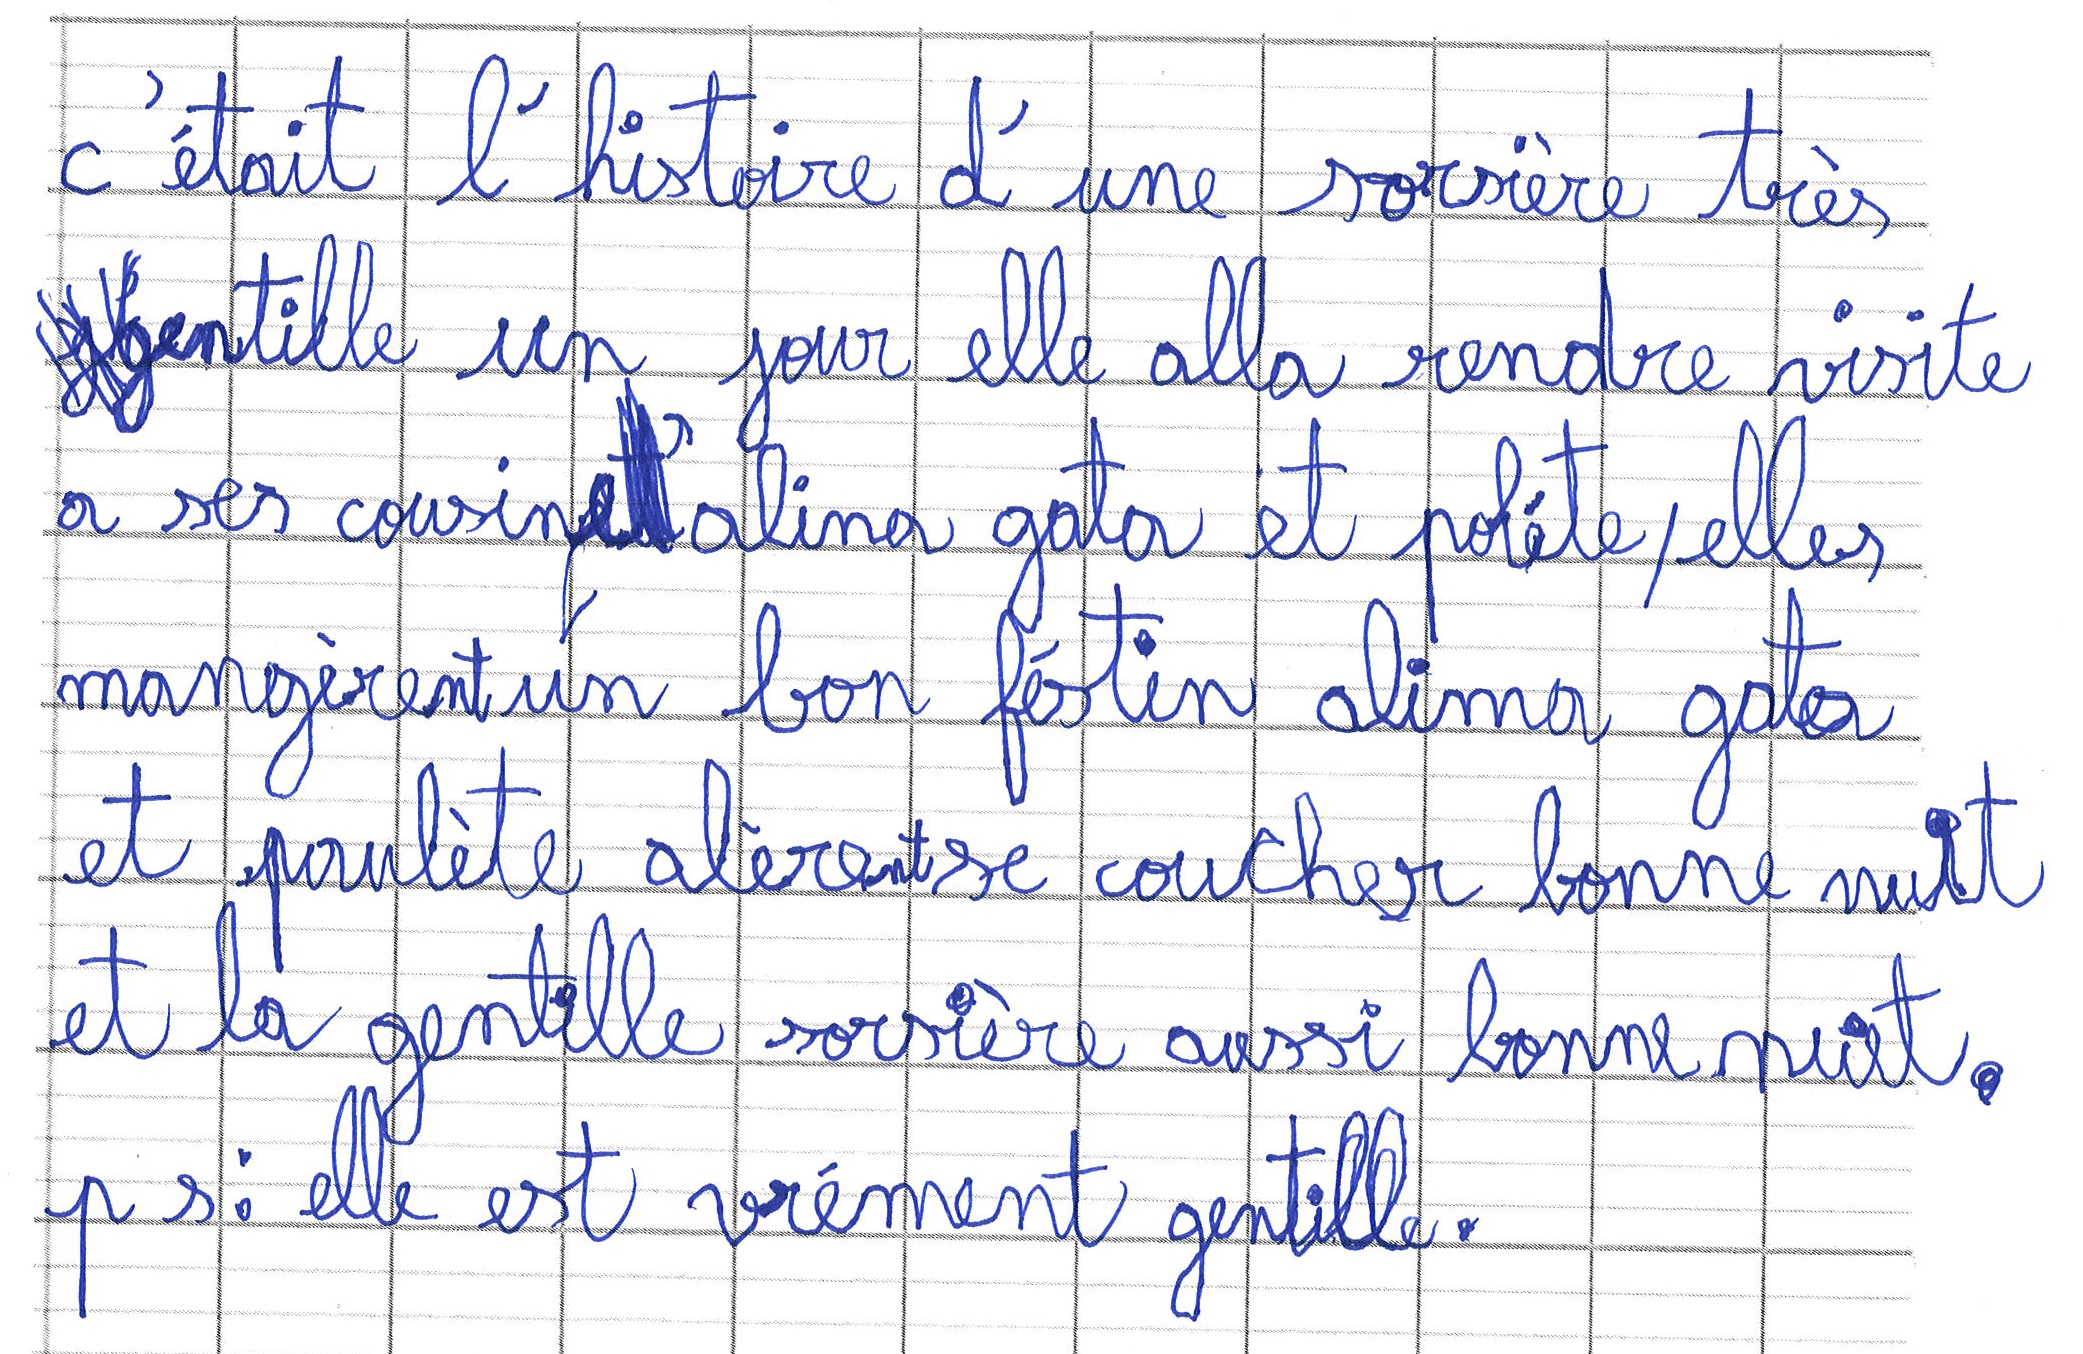 c'était l'histoire d'une sorsière très
gentille un jour elle alla rendre visite
a ses cousin alina gata et poléte, elles
mangèrent un bon féstin alima gata
et poulète alèrent se coucher bonne nuit
et la gentille sorsière aussi bonne nuit.
p s: elle est vrément gentille.